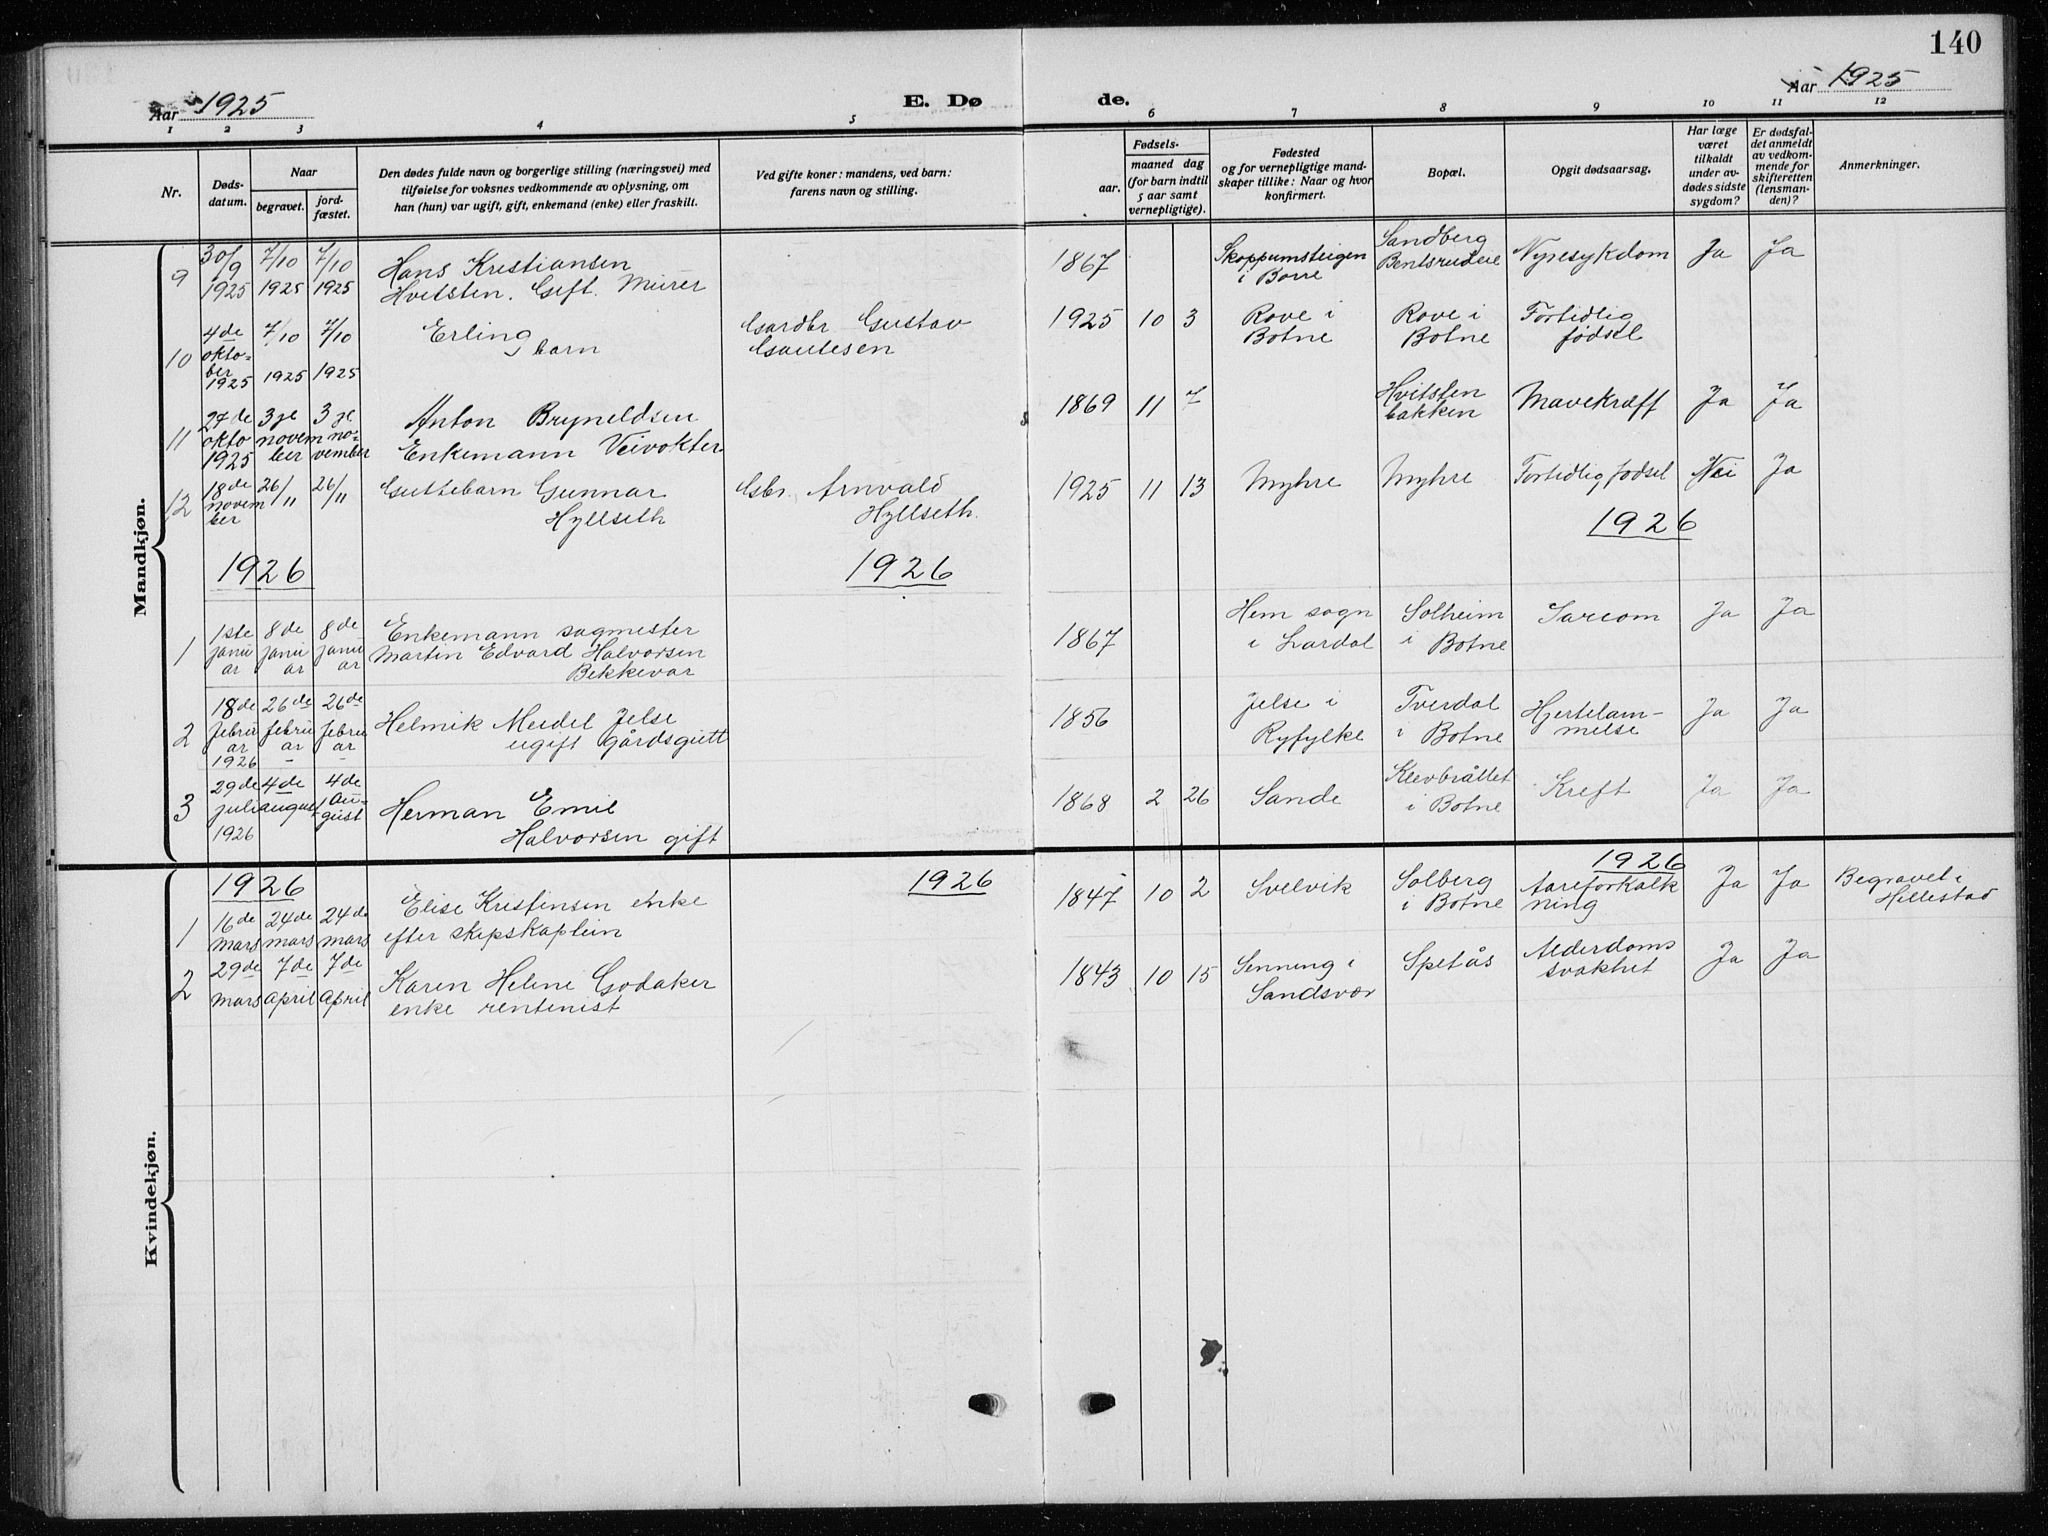 140
Aar 1925
E. Dø
de.
Aar 1925
1 2 3 4 5 6 7 8 9 10 11 12
Nr.
Døds-
datum.
Naar
begravet.
jord-
fæstet.
Den dødes fulde navn og borgerlige stilling (næringsvei) med
tilføielse for voksnes vedkommende av oplysning, om
han (hun) var ugift, gift, enkemand (enke) eller fraskilt.
Ved gifte koner: mandens, ved barn:
farens navn og stilling.
Fødsels-
aar.
maaned dag
(for barn indtil
5 aar samt
vernepligtige).
Fødested
og for vernepligtige mand-
skaper tillike: Naar og hvor
konfirmert.
Bopæl.
Opgit dødsaarsag.
Har læge
været
tilkaldt
under av-
dødes sidste
sygdom?
Er dødsfal-
det anmeldt
av vedkom-
mende for
skifteretten
(lensman-
den)?
Anmerkninger.
Mandkjøn.
9
30/9
1925
7/10
1925
7/10
1925
Hans Kristiansen
Hvitsten. Gift. Murer
1867
Skoppumsteigen
i Borre
Sandberg
Bentsrudeie
Nyresykdom
Ja
Ja
10
4de
okto-
ber
1925
7/10
1925
7/10
1925
Erling
barn
Gardbr Gustav
Gautesen
1925 10 3
Rove i
Botne
Rove i
Botne
Fortidlig
fødsel
11
27de
okto
1925
3je
novem
ber
3je
no-
vember
Anton Bryneldsen
Enkemann Veivokter
1869 11 7
Hvitsten
bakken
Mavekræft
Ja
Ja
12
18de
novem
ber
26/11
26/11
Guttebarn Gunnar
Hyllseth
Gbr. Arnvald
Hyllseth.
1925 11 13
Myhre
Myhre
Fortidlig fødsel
Nei
Ja
1926
1926
1926
1
1ste
janu
ar
8de
janu
ar
8de
janu
ar
Enkemann sagmester
Martin Edvard Halvorsen
Bekkevar
1867
Hem sogn
i Lardal
Solheim
i Botne
Sarcom
Ja
Ja
2
18de
febru
ar
1926
26de
febru
ar
-
26de
febru
ar
-
Helmik Meidel Jelse
ugift gårdsgutt
1856
Jelse i
Ryfylke
Tverdal
i Botne
Hjertelam-
melse
Ja
Ja
3
29de
juli
1926
4de
august
4de
Au-
gust
Herman Emil
Halvorsen gift
1868 2 26
Sande
Klevbråttet
i Botne
Kreft
Ja
Ja
Kvindekjøn.
1926
1926
1926
1
16de
mars
24de
mars
24de
mars
Elise Kristensen enke
efter skipskaptein
1847 10 2
Svelvik
Solberg
i Botne
Aareforkalk
ning
Ja
Ja
Begravet i
Hillestad
2
29de
mars
7de
april
7de
April
Karen Helene Godaker
enke rentenist
1843 10 15
Senning i
Sandsvær
Spetås
Alderdoms
svakhet
Ja
Ja